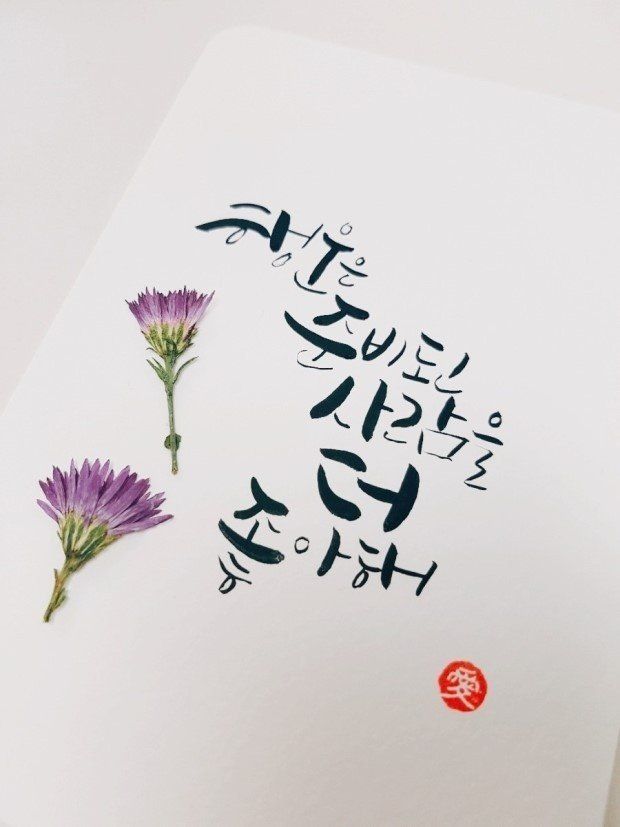 행운은
준비된
사람을
더
좋아해
愛